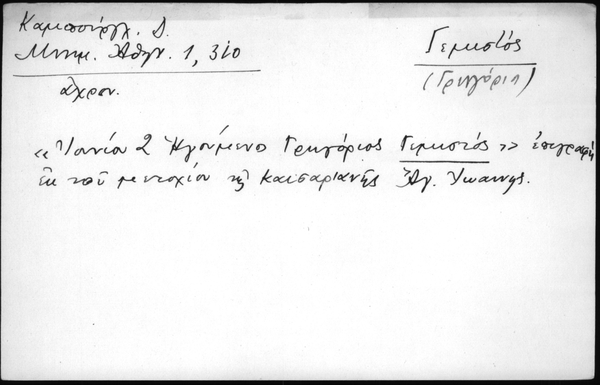 Καμπούργλ. Δ.
Μνημ. Αθην. 1, 310
άχρον.
Γεμιστός
(Γρηγόριος)
« Ἰουνίου 2 Ἡγούμενο Γρηγόριος Γεμιστός » ἐπιγραφή
ἐκ τοῦ μετοχίου τῆς Καισαριανῆς Ἁγ. Ἰωάννης.